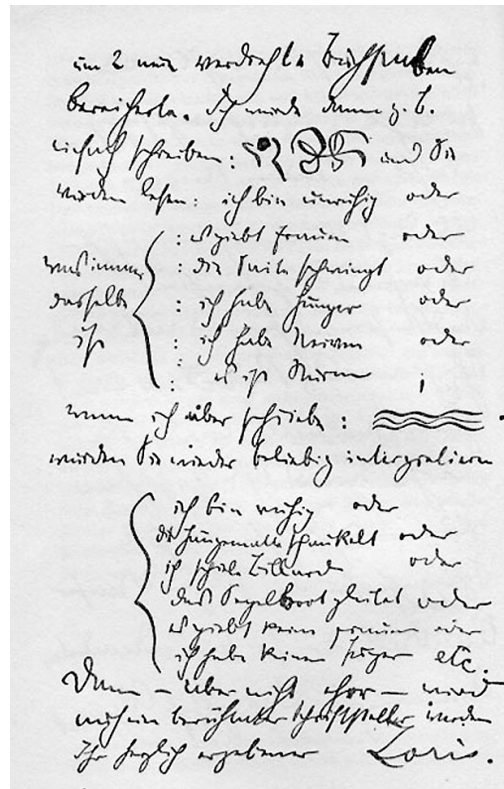 um 2 neue verdrehte Buchstaben
bereicherte. Ich werde dann z. b.
einfach schreiben: und Sie
werden lesen: ich bin unruhig oder
: es giebt Frauen oder
was immer : die Saite schwingt oder
dasselbe : ich habe Hunger oder
ist : ich habe Nerven oder
: es ist Sturm ;
wenn ich aber schreibe :
würden Sie wieder beliebig interpretieren
ich bin ruhig oder
die Hängematte schaukelt oder
ich spiele Billard oder
das Segelboot gleitet oder
es giebt keine Frauen oder
ich habe keinen Hunger etc.
Dann – aber nicht eher – wird
ein berühmter Schriftsteller werden
Ihr herzlich ergebener Loris.